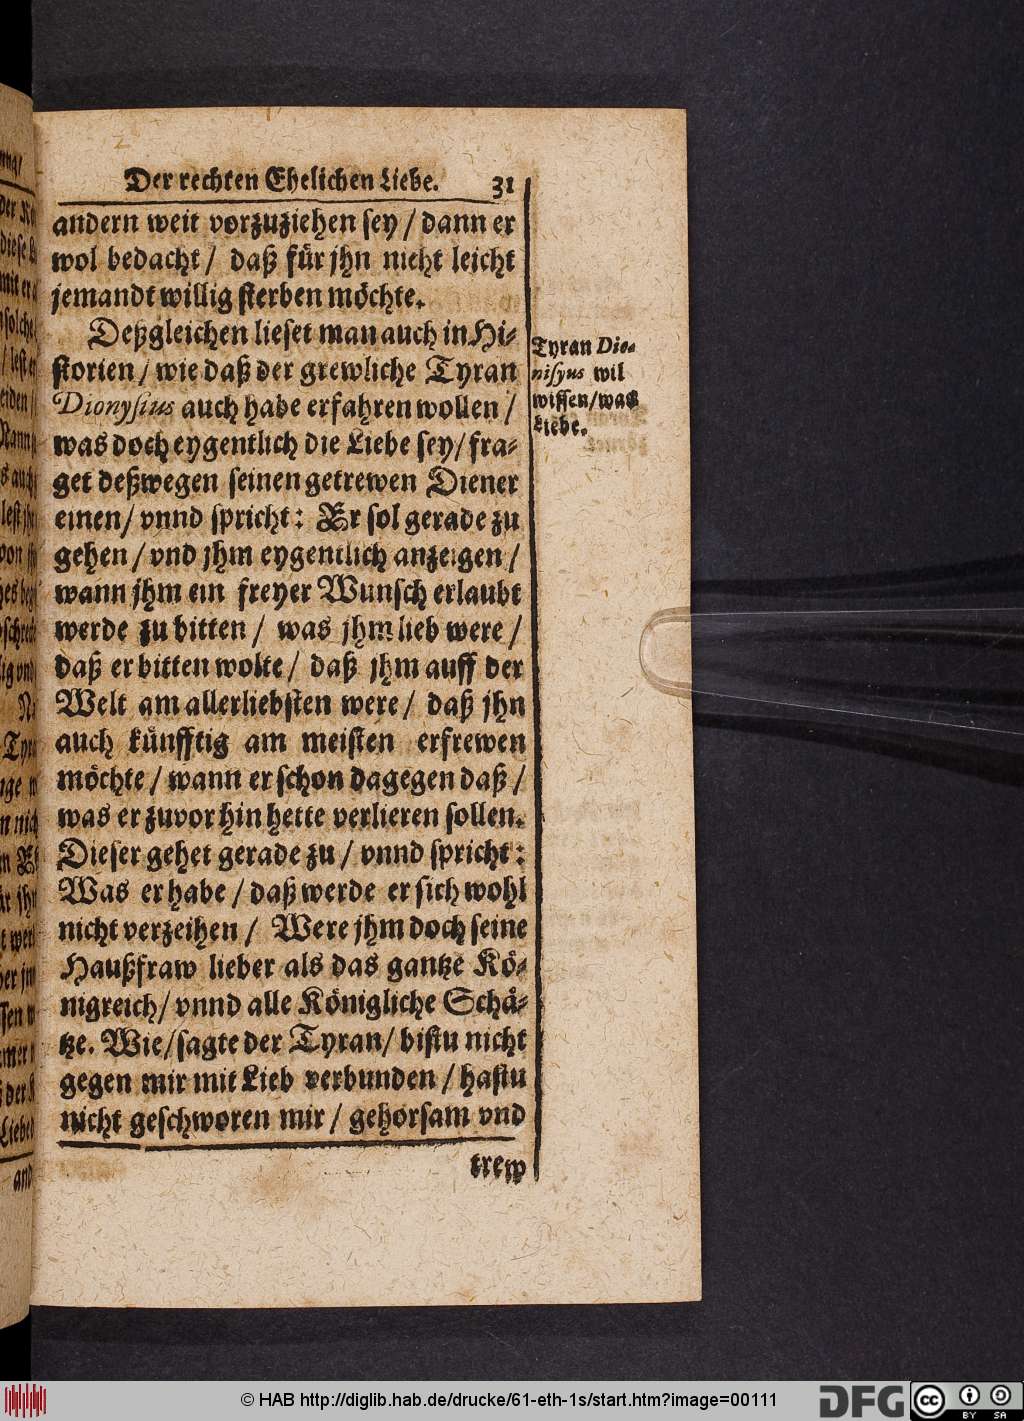 Der rechten Ehelichen Liebe. 31
andern weit vorzuziehen sey / dann er
wol bedacht / daß für jhn nicht leicht
jemandt willig sterben möchte.
Deßgleichen lieset man auch in Hi-
storien / wie daß der grewliche Tyran
Dionysius auch habe erfahren wollen /
was doch eygentlich die Liebe sey / fra-
get deßwegen seinen getrewen Diener
einen / vnnd spricht: Er sol gerade zu
gehen / vnd jhm eygentlich anzeigen /
wann jhm ein freyer Wunsch erlaubt
werde zu bitten / was jhm lieb were /
daß er bitten wolte / daß jhm auff der
Welt am allerliebsten were / daß jhn
auch künfftig am meisten erfrewen
möchte / wann er schon dagegen daß /
was er zuvor hin hette verlieren sollen.
Dieser gehet gerade zu / vnnd spricht:
Was er habe / daß werde er sich wohl
nicht verzeihen / Were jhm doch seine
Haußfraw lieber als das gantze Kö-
nigreich / vnnd alle Königliche Schä-
tze. Wie / sagte der Tyran / bistu nicht
gegen mir mit Lieb verbunden / hastu
nicht geschworen mir / gehorsam vnd
trew
Tyran Dio-
nisyus wil
wissen / was
Liebe.
© HAB http://diglib.hab.de/drucke/61-eth-1s/start.htm?image=00111
DFG
cc
BY SA